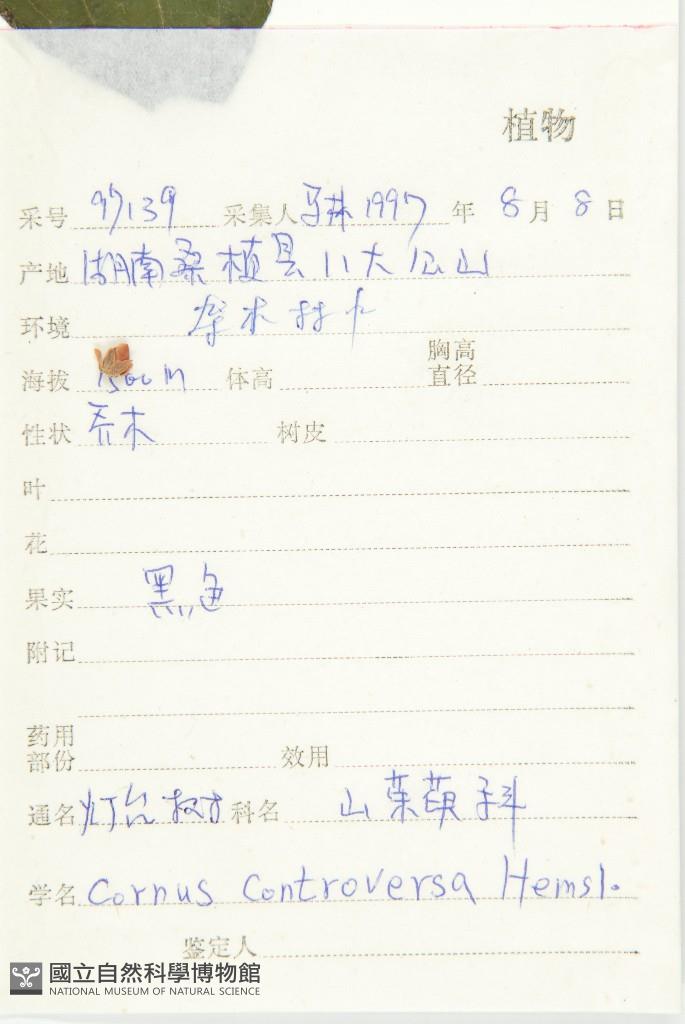 植物
采号 97139 采集人 马林 1997 年 8 月 8 日
产地 湖南桑植县八大公山
环境 杂木林中
海拔 1500m 体高 胸高直径
性状 乔木 树皮
叶
花
果实 黑色
附记
药用部份 效用
通名 灯台树 科名 山茱萸科
学名 Cornus Controversa Hemsl.
鉴定人
國立自然科學博物館
NATIONAL MUSEUM OF NATURAL SCIENCE